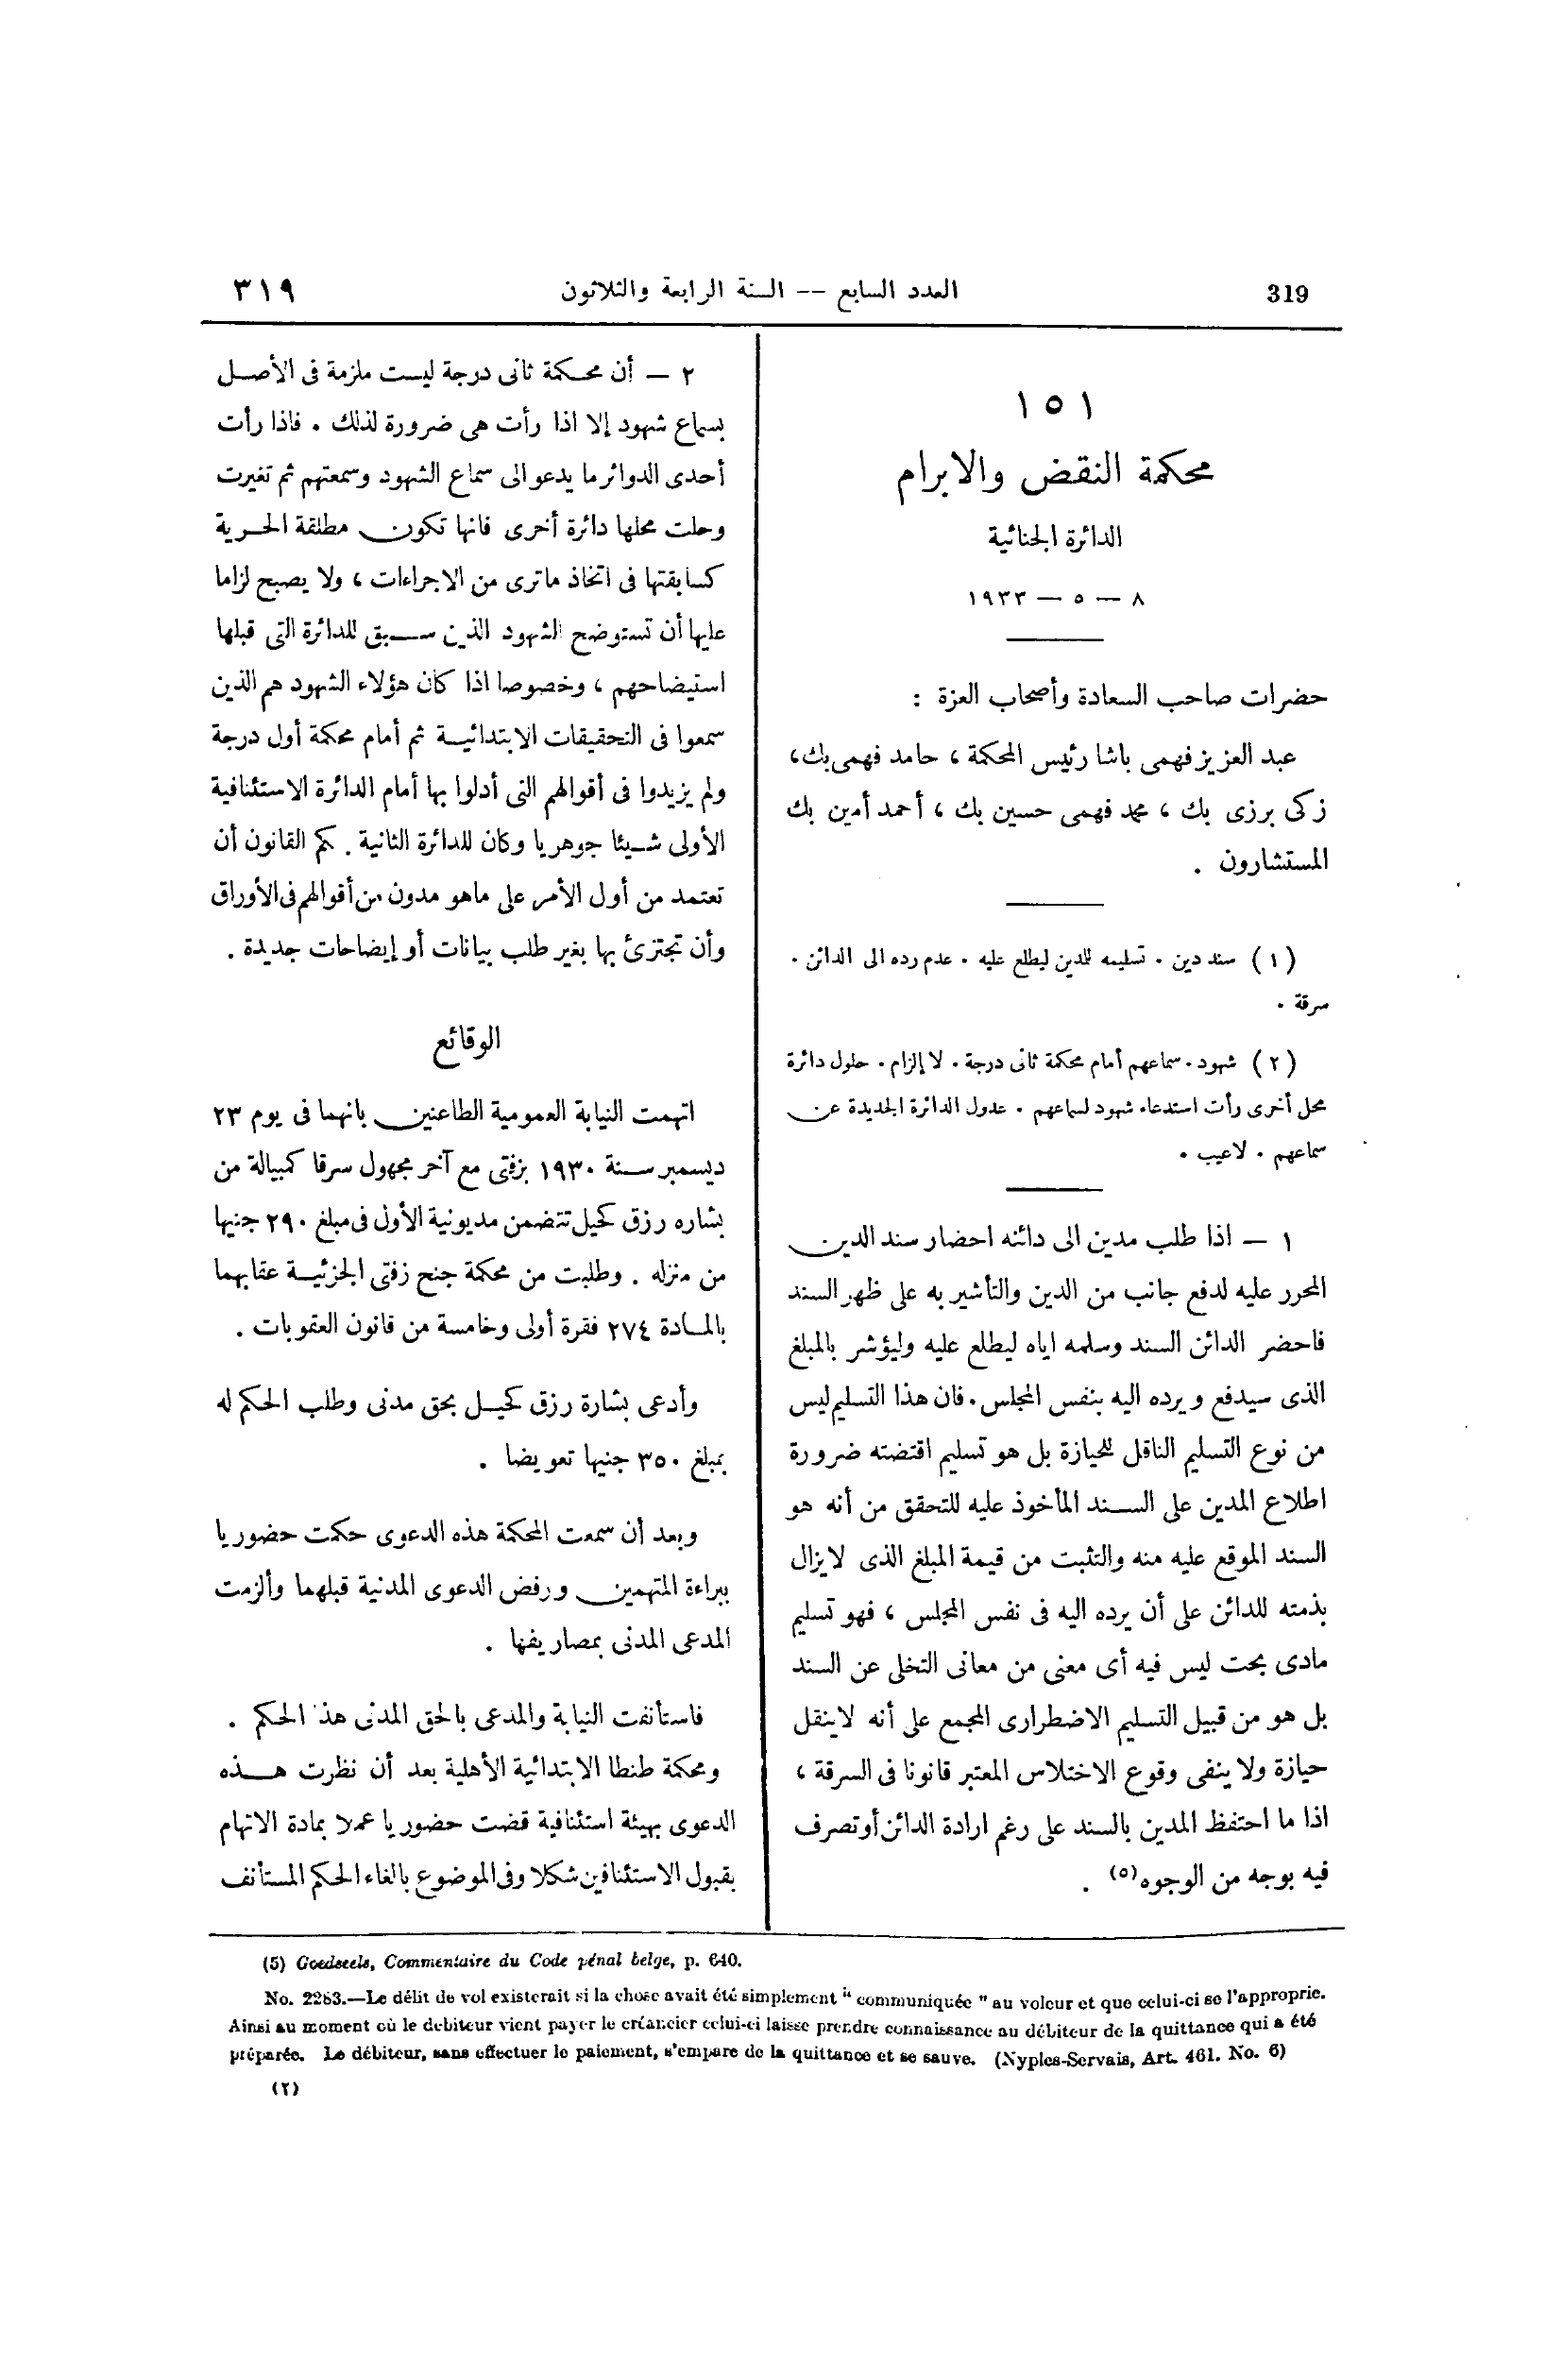 319
العدد السابع -- السنة الرابعة والثلاثون
٣١٩
١٥١
محكمة النقض والابرام
الدائرة الجنائية
٨ — ٥ — ١٩٣٣
حضرات صاحب السعادة وأصحاب العزة :
عبد العزيز فهمى باشا رئيس المحكمة ، حامد فهمى بك،
زكى برزى بك ، محمد فهمى حسين بك ، أحمد أمين بك
المستشارون .
(١) سند دين . تسليمه للدين ليطلع عليه . عدم رده الى الدائن .
سرقة .
(٢) شهود . سماعهم أمام محكمة ثانى درجة . لا إلزام . حلول دائرة
محل أخرى رأت استدعاء شهود لسماعهم . عدول الدائرة الجديدة عن
سماعهم . لاعيب .
١ — اذا طلب مدين الى دائنه احضار سند الدين
المحرر عليه لدفع جانب من الدين والتأشير به على ظهر السند
فاحضر الدائن السند وسلمه اياه ليطلع عليه وليؤشر بالمبلغ
الذى سيدفع ويرده اليه بنفس المجلس . فان هذا التسليم ليس
من نوع التسليم الناقل للحيازة بل هو تسليم اقتضته ضرورة
اطلاع المدين على السند المأخوذ عليه للتحقق من أنه هو
السند الموقع عليه منه والتثبت من قيمة المبلغ الذى لا يزال
بذمته للدائن على أن يرده اليه فى نفس المجلس ، فهو تسليم
مادى بحت ليس فيه أى معنى من معانى التخلى عن السند
بل هو من قبيل التسليم الاضطرارى المجمع على أنه لا ينقل
حيازة ولا ينفى وقوع الاختلاس المعتبر قانونا فى السرقة ،
اذا ما احتفظ المدين بالسند على رغم ارادة الدائن أو تصرف
فيه بوجه من الوجوه (٥) .
٢ — أن محكمة ثانى درجة ليست ملزمة فى الأصل
بسماع شهود إلا اذا رأت هى ضرورة لذلك . فاذا رأت
أحدى الدوائر ما يدعو الى سماع الشهود وسمعتهم ثم تغيرت
وحلت محلها دائرة أخرى فانها تكون مطلقة الحرية
كسابقتها فى اتخاذ ماترى من الاجراءات ، ولا يصبح لزاما
عليها أن تستوضح الشهود الذين سبق للدائرة التى قبلها
استيضاحهم ، وخصوصا اذا كان هؤلاء الشهود هم الذين
سمعوا فى التحقيقات الابتدائية ثم أمام محكمة أول درجة
ولم يزيدوا فى أقوالهم التى أدلوا بها أمام الدائرة الاستئنافية
الأولى شيئا جوهريا وكان للدائرة الثانية . كم القانون أن
تعتمد من أول الأمر على ماهو مدون من أقوالهم فى الأوراق
وأن تجتزئ بها بغير طلب بيانات أو إيضاحات جديدة .
الوقائع
اتهمت النيابة العمومية الطاعنين بانهما فى يوم ٢٣
ديسمبر سنة ١٩٣٠ بزفتى مع آخر مجهول سرقا كمبيالة من
بشاره رزق كحيل تتضمن مديونية الأول فى مبلغ ٢٩٠ جنيها
من منزله . وطلبت من محكمة جنح زفتى الجزئية عقابهما
بالمادة ٢٧٤ فقرة أولى وخامسة من قانون العقوبات .
وأدعى بشارة رزق كحيل بحق مدنى وطلب الحكم له
بمبلغ ٣٥٠ جنيها تعويضا .
وبعد أن سمعت المحكمة هذه الدعوى حكمت حضوريا
ببراءة المتهمين ورفض الدعوى المدنية قبلهما وألزمت
المدعى المدنى بمصاريفها .
فاستأنفت النيابة والمدعى بالحق المدنى هذا الحكم .
ومحكمة طنطا الابتدائية الأهلية بعد أن نظرت هذه
الدعوى بهيئة استئنافية قضت حضوريا عملا بمادة الاتهام
بقبول الاستئنافين شكلا وفى الموضوع بالغاء الحكم المستأنف
(5) Goedseels, Commentaire du Code pénal belge, p. 640.
No. 2283.—Le délit de vol existerait si la chose avait été simplement " communiquée " au voleur et que celui-ci se l'approprie.
Ainsi au moment où le débiteur vient payer le créancier celui-ci laisse prendre connaissance au débiteur de la quittance qui a été
préparée. Le débiteur, sans effectuer le paiement, s'empare de la quittance et se sauve. (Nypels-Servais, Art. 461. No. 6)
(٢)